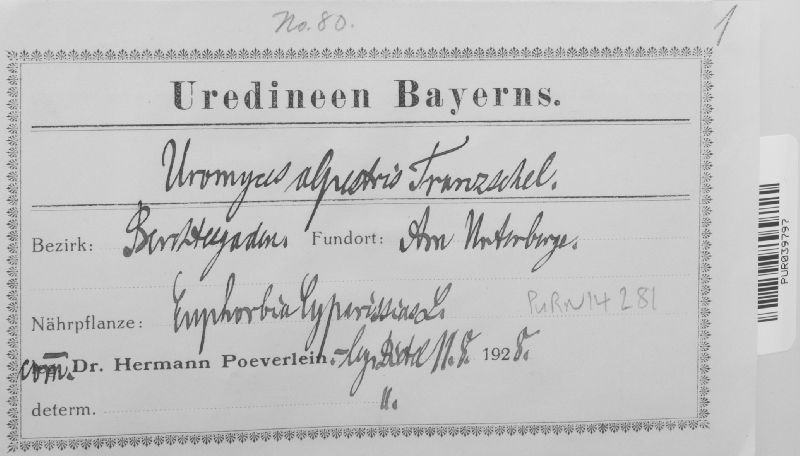 No. 80.
1
Uredineen Bayerns.
Uromyces alpestris Tranzschel.
Bezirk: Berchtesgaden. Fundort: Am Untersberge.
Nährpflanze: Euphorbia Cyparissias L.
PURN14281
com. Dr. Hermann Poeverlein. leg. 11.8. 1928.
determ. ".
PUR039797